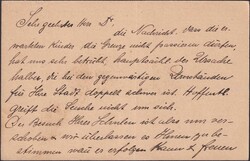 Sehr geehrter Herr Dr.
die Nachricht, dass die er-
warteten Kinder die Grenze nicht passieren dürfen,
hat uns sehr betrübt, hauptsächlich der Ursache
halber, die bei den gegenwärtigen Zuständen
für Ihre Stadt doppelt schwer ist. Hoffentl.
greift die Seuche nicht um sich.
Der Besuch Ihrer Schulen ist also nun ver-
schoben & wir überlassen es Ihnen zu be-
stimmen wann es erfolgen kann & freuen